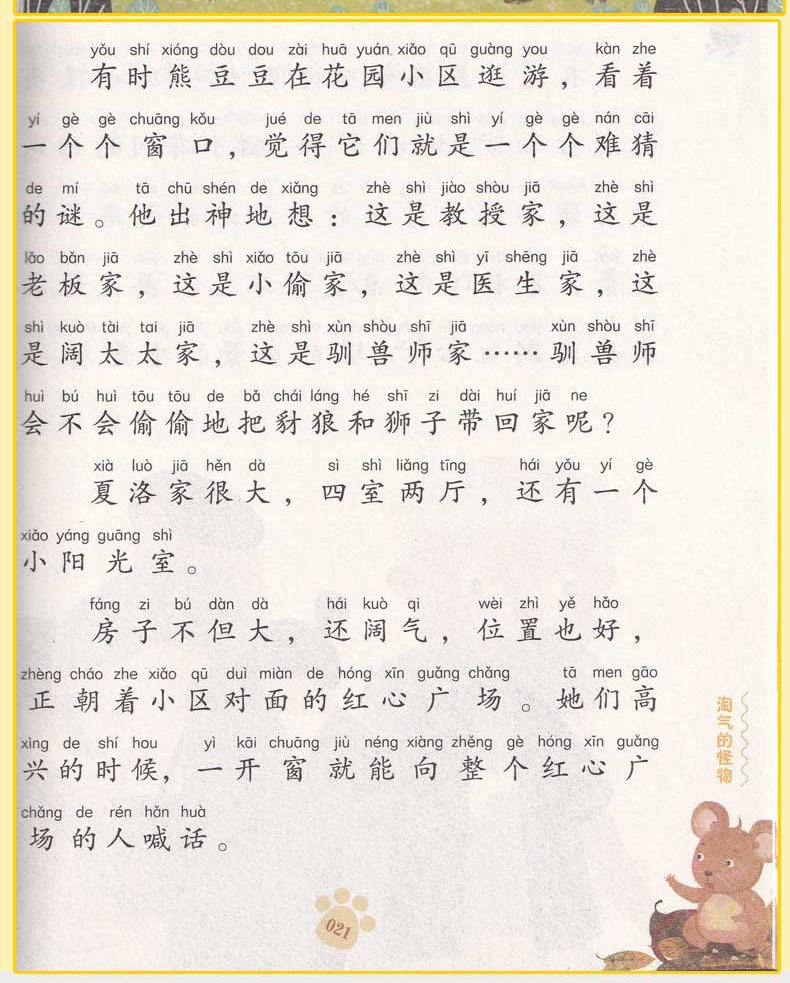 yǒu shí xióng dòu dou zài huā yuán xiǎo qū guàng you kàn zhe
有时熊豆豆在花园小区逛游，看着
yí gè gè chuāng kǒu jué de tā men jiù shì yí gè gè nán cāi
一个个窗口，觉得它们就是一个个难猜
de mí tā chū shén de xiǎng zhè shì jiào shòu jiā zhè shì
的谜。他出神地想：这是教授家，这是
lǎo bǎn jiā zhè shì xiǎo tōu jiā zhè shì yī shēng jiā zhè
老板家，这是小偷家，这是医生家，这
shì kuò tài tai jiā zhè shì xùn shòu shī jiā xùn shòu shī
是阔太太家，这是驯兽师家……驯兽师
huì bú huì tōu tōu de bǎ chái láng hé shī zi dài huí jiā ne
会不会偷偷地把豺狼和狮子带回家呢？
xià luò jiā hěn dà sì shì liǎng tīng hái yǒu yí gè
夏洛家很大，四室两厅，还有一个
xiǎo yáng guāng shì
小阳光室。
fáng zi bú dàn dà hái kuò qi wèi zhì yě hǎo
房子不但大，还阔气，位置也好，
zhèng cháo zhe xiǎo qū duì miàn de hóng xīn guǎng chǎng tā men gāo
正朝着小区对面的红心广场。她们高
xìng de shí hou yì kāi chuāng jiù néng xiàng zhěng gè hóng xīn guǎng
兴的时候，一开窗就能向整个红心广
chǎng de rén hǎn huà
场的人喊话。
淘气的怪物
021